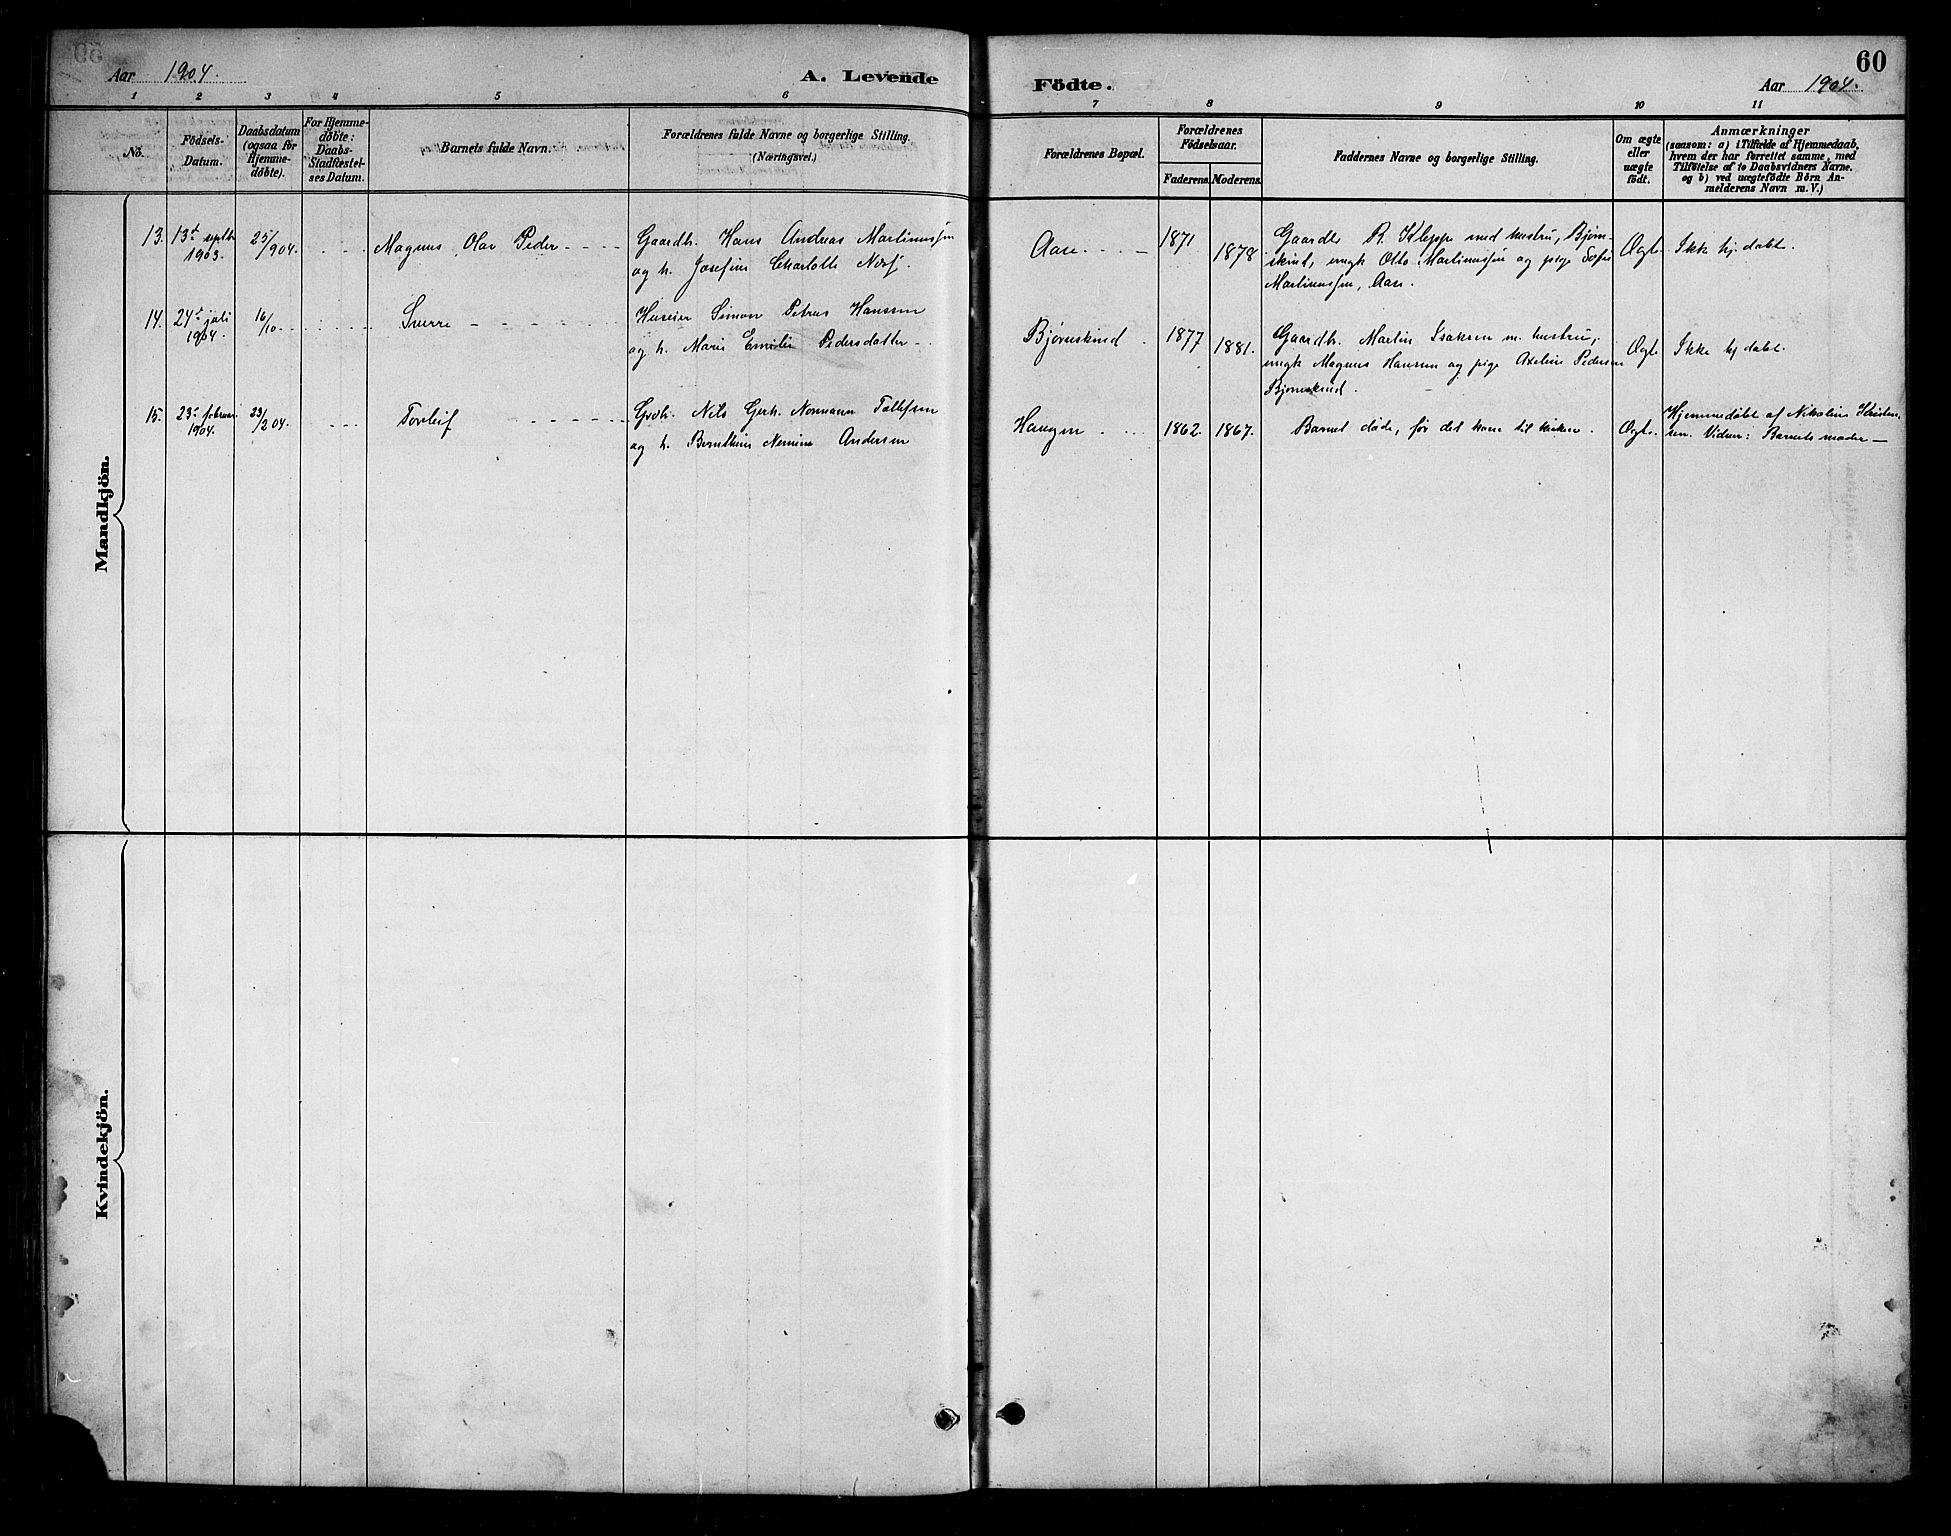 Aar 1904.
A. Levende
Födte.
Aar 1904.
60
1 2 3 4 5 6 7 8 9 10 11
No.
Födsels-
Datum.
Daabsdatum
(ogsaa før
Hjemme-
døbte).
For Hjemme-
døbte:
Daabs-
Stadfæstel-
ses Datum.
Barnets fulde Navn.
Forældrenes fulde Navne og borgerlige Stilling.
(Næringsvei.)
Forældrenes Bopæl.
Forældrenes
Födselsaar.
Faderens. Moderens.
Faddernes Navne og borgerlige Stilling.
Om ægte
eller
uægte
født.
Anmærkninger
(saasom: a) i Tilfælde af Hjemmedaab,
hvem der har forrettet samme, med
Tilföielse af to Daabsvidners Navne.
og b) ved uægtefödte Börn An-
melderens Navn m. V.)
Mandkjön.
13. 13d septbr
1903.
25/ 904.
Magnus Olav Peder
Gaardb. Hans Andreas Martinussen
og h. Josefine Charlotte
Aase.
1871
1878
Gaardb R. Kleppe med hustru, Bjørn-
skind, ungk Otto Martinussen og pige
Martinussen, Aase.
Ægte
Ikke hj. døbt.
14. 24d juli
1904.
16/10
Sverre
Huseier Simon Petrus Hanssen
og h. Marie Emilie Pedersdatter
Bjørnskind
1877
1881.
Gaardb. Martin Isaksen m. hustru,
ungk Magnus Hansen og pige Axeline Pedersen
Bjørnskind.
Ægte
Ikke hj døbt.
15. 23d februar
1904.
23/2 04.
Torleif
Grdb. Nils Gerh. Normann Tollefsen
og h. Bernthine Nemine Andersen
Haugen
1862. 1867.
Barnet døde, før det kom til kirken.
Ægte.
Hjemmedøbt af Nikoline
sen. Vidner: Barnets moder
Kvindekjön.